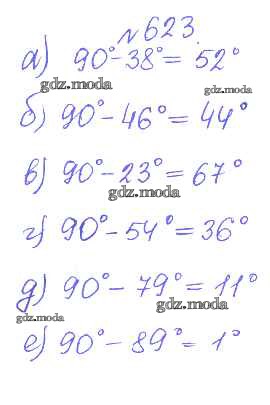 №623.
а) 90°-38°=52°
gdz.moda
gdz.moda
б) 90°-46°=44°
в) 90°-23°=67°
gdz.moda
г) 90°-54°=36°
д) 90°-79°=11°
gdz.moda
gdz.moda
е) 90°-89°=1°